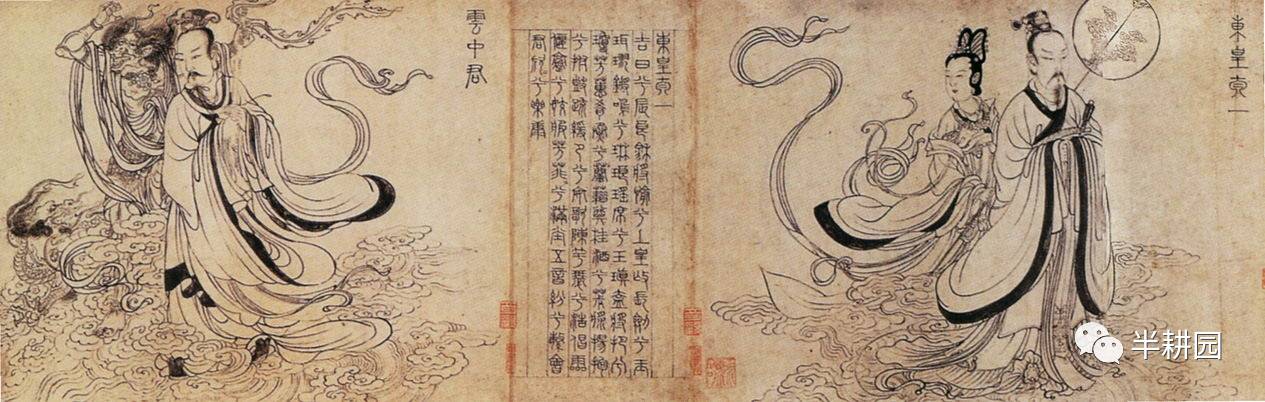 東皇太一
東皇太一
吉日兮辰良穆將愉兮上皇撫長劍兮玉
珥璆鏘鳴兮琳琅瑤席兮玉瑱盍將把兮
瓊芳蕙肴蒸兮蘭藉奠桂酒兮椒漿揚枹
兮拊鼓疏緩節兮安歌陳竽瑟兮浩倡靈
偃蹇兮姣服芳菲菲兮滿堂五音紛兮繁會
君欣欣兮樂康
雲中君
半耕园